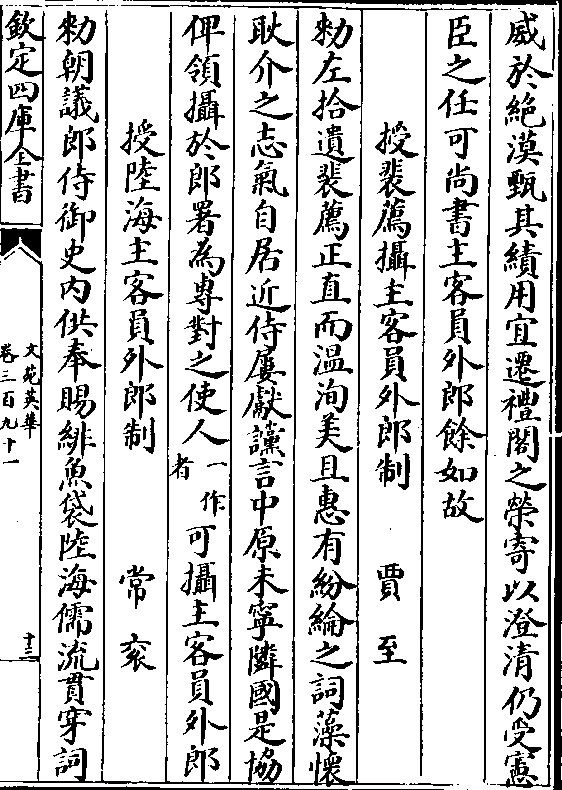 威於絶漠甄其績用宜遷禮閣之榮寄以澄清仍受憲
臣之任可尚書主客員外郎餘如故
授裴薦攝主客員外郎制 賈至
勑左拾遺裴薦正直而温洵美且惠有紛綸之詞藻懷
耿介之志氣自居近侍屢獻讜言中原未寧隣國是協
俾領攝於郎署為專對之使人一作者可攝主客員外郎
授陸海主客員外郎制 常衮
勑朝議郎侍御史内供奉賜緋魚袋陸海儒流貫穿詞
欽定四庫全書
文苑英華
卷三百九十一
十三